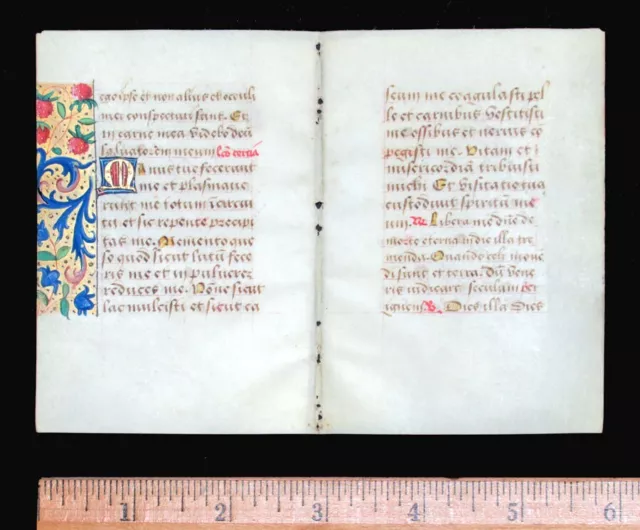 egoipse et non alius et oculi
mei conspecturi sunt. Et
in carne mea videbo deū
salvatorem meum. lectio tercia
Manus tue fecerunt
me et plasmave
runt me totum in circui
tu et sic repente precipi
tas me. Memento que
so quod sicut lutū fece
ris me et in pulverez
reduces me. Nōne sicut
lac mulcisti et sicut ca
seum me coagulasti pel
le et carnibus vestitisti
me ossibus et nervis cō
pegisti me. Vitam et
misericordiā tribuisti
michi Et visitatio tua
custodivit spiritū me
um. Libera me dūe de
morte eterna in die illa tre
menda. Quando celi move
di sunt et terra. Dū vene
ris iudicare seculum per
ignem. Dies illa dies
1 2 3 4 5 6